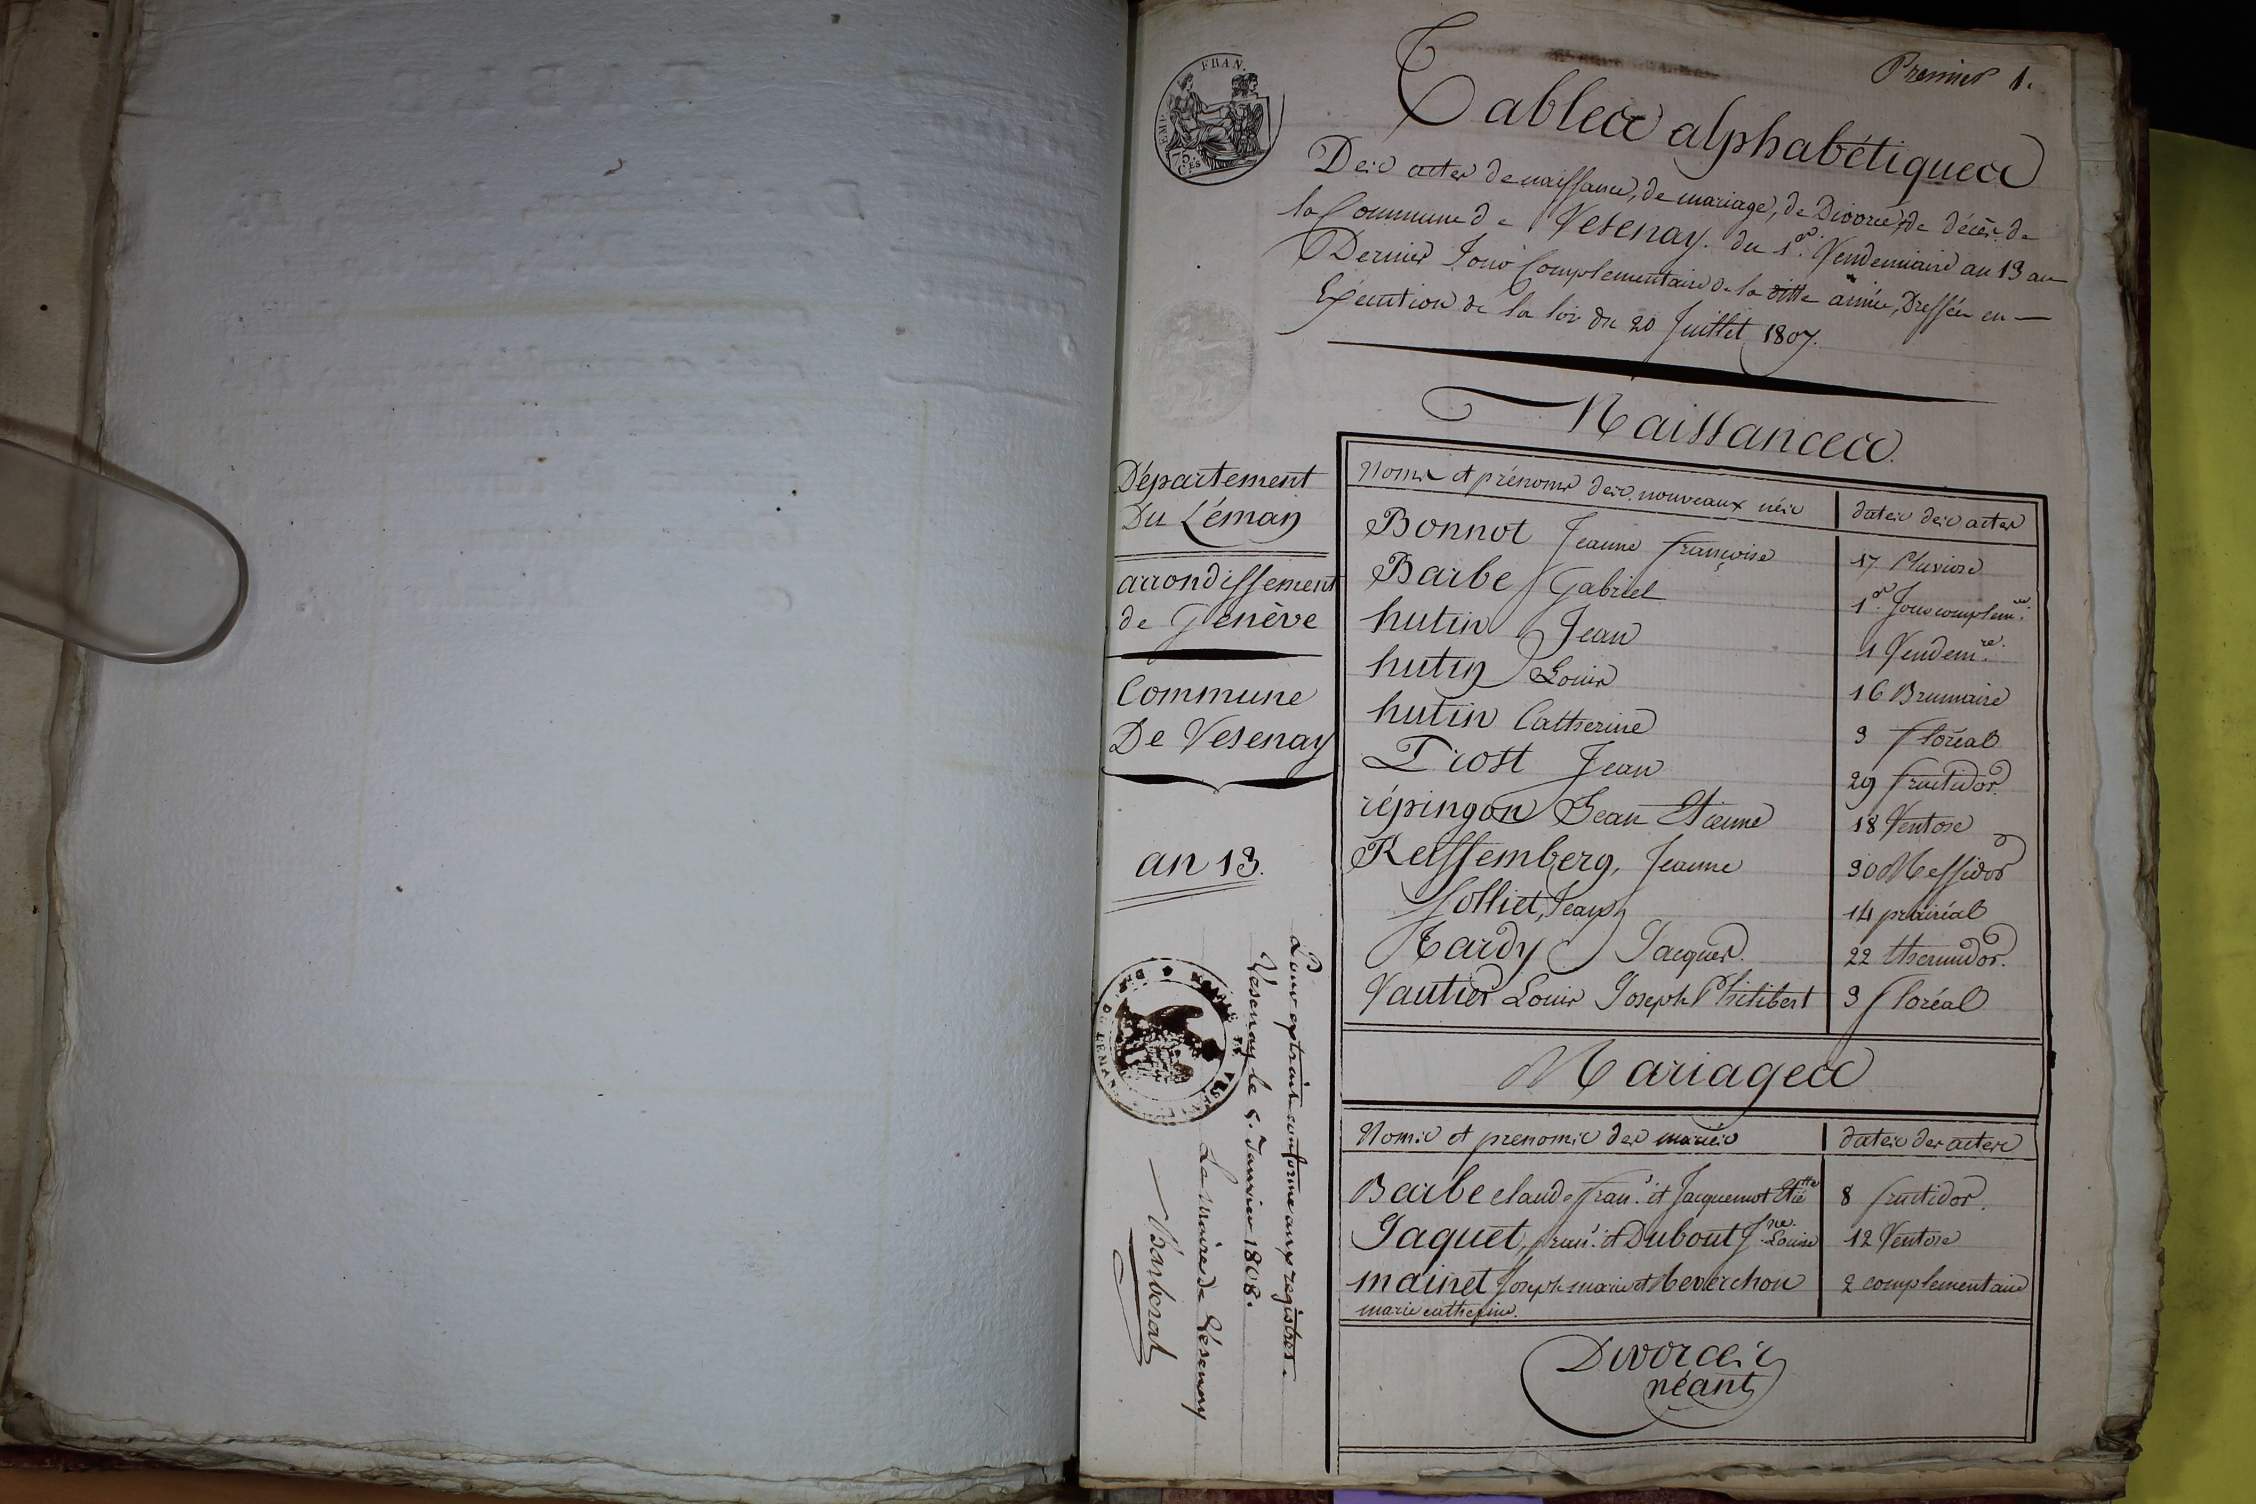 Premier 1.
FRAN.
75 CES
Tables alphabétiques
Des actes de naissance, de mariage, de Divorce, de décès de
la Commune de Vesenay. du 1er. Vendemiaire an 13 au
Dernier Jour Complementaire de la ditte année, Dressées en —
Exécution de la loi du 20 Juillet 1807.
Naissances
Département
Du Léman
arrondissement
de Genève
Commune
De Vesenay
an 13.
Noms et prénoms des nouveaux nés dates des actes
Bonnot Jeanne françoise 17 Pluviose
Barbe Gabriel 1er. Jour complemre.
hutin Jean 1 Vendemre.
hutin Louis 16 Brumaire
hutin Catherine 3 floréal
Prost Jean 29 fructidor
répingon Jean Etienne 18 Ventose
Reissemberg, Jeanne 30 Messidor
Solliet, Jean 14 prairéal
Tardy Jacques. 22 thermidor.
Vautier Louis Joseph Philibert 3 floréal
Mariages
Noms et prenoms des mariés dates des actes
Barbe claude fran.s et Jacquemot Etietté 8 fructidor.
Jaquet, fran.s et Dubout Jne. Louise 12 Ventose
mainet Joseph marie et 2 complementaire
marie catherine.
Divorces
néant
Pour extrait conforme aux registres.
Vesenay le 5. Janvier 1808.
Le Maire de Vésenay
DU LEMAN